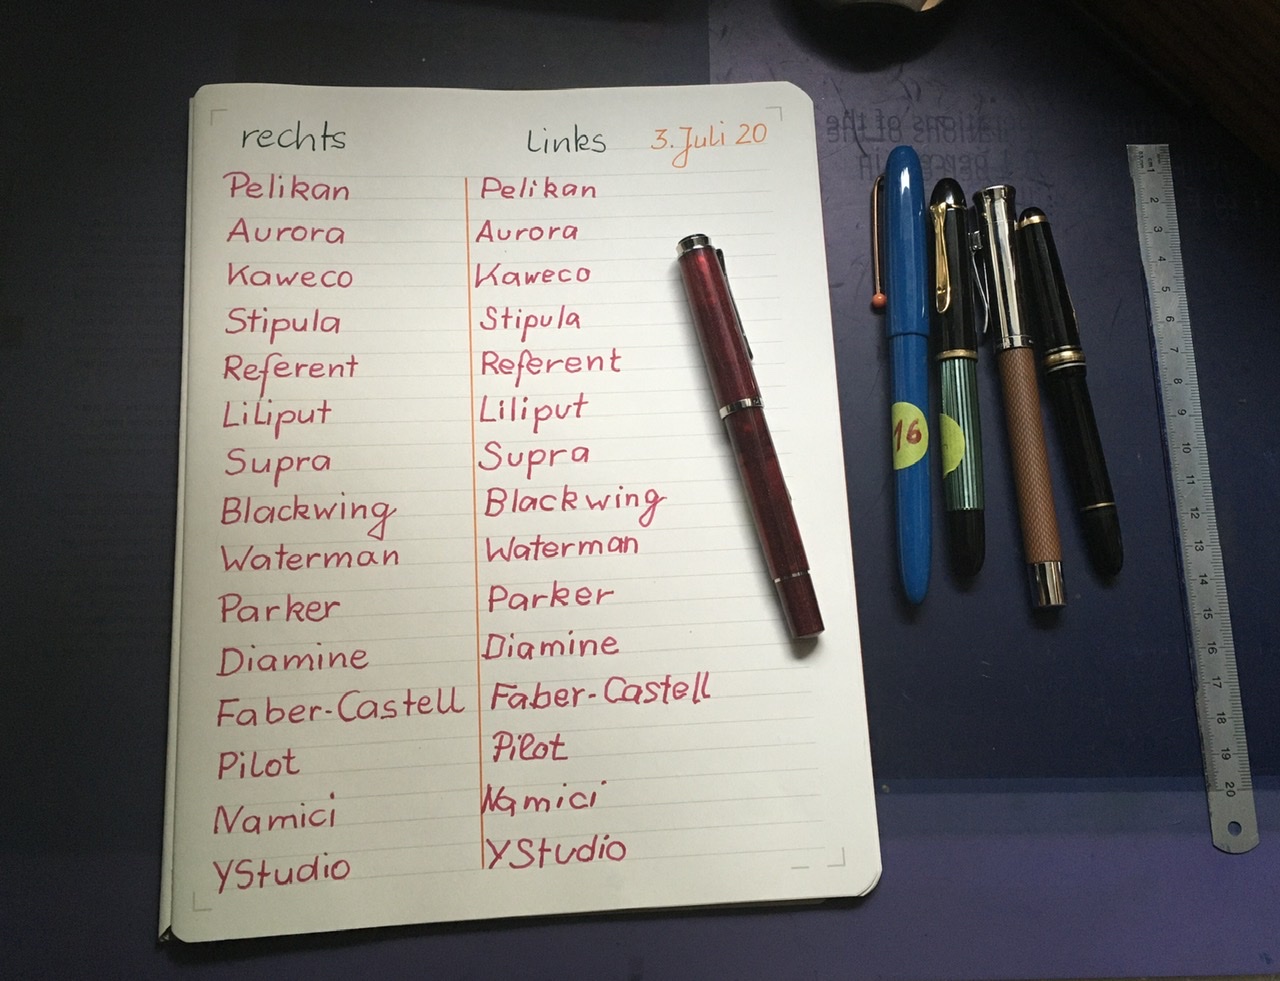 rechts Links 3. Juli 20
Pelikan Pelikan
Aurora Aurora
Kaweco Kaweco
Stipula Stipula
Referent Referent
LiLiput Liliput
Supra Supra
Blackwing Blackwing
Waterman Waterman
Parker Parker
Diamine Diamine
Faber-Castell Faber-Castell
Pilot Pilot
Namici Namici
YStudio YStudio
16
1 2 3 4 5 6 7 8 9 10 11 12 13 14 15 16 17 18 19 20